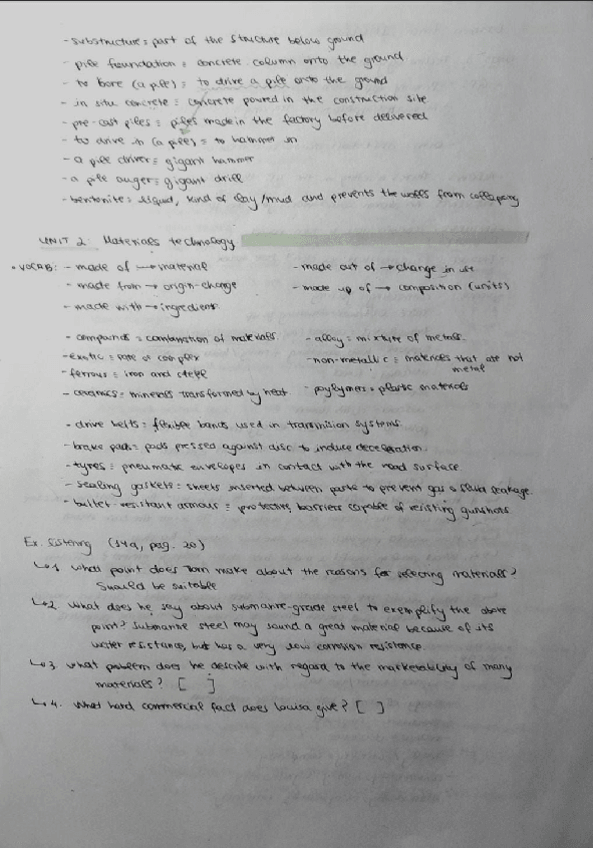 - substructure = part of the structure below ground
- pile foundation = concrete column onto the ground
- to bore (a pile) = to drive a pile onto the ground
- in situ concrete = concrete poured in the construction site
- pre-cast piles = piles made in the factory before delivered
- to drive in (a pile) = to hammer in
- a pile driver = gigant hammer
- a pile auger = gigant drill
- bentonite = liquid, kind of clay/mud and prevents the walls from collapsing
UNIT 2: Materials technology
• VOCAB: - made of → material - made out of → change in use
- made from → origin-change - made up of → composition (units)
- made with → ingredients
- compounds = combination of materials. - alloy = mixture of metals.
- exotic = rare or complex - non-metallic = materials that are not metal
- ferrous = iron and steel
- ceramics = minerals transformed by heat - polymers = plastic materials
- drive belts = flexible bands used in transmision systems.
- brake pads = pads pressed against disc to induce deceleration.
- tyres = pneumatic envelopes in contact with the road surface.
- sealing gaskets = sheets inserted between parts to prevent gas o fluid leakage.
- bullet-resistant armous = protective barriers capable of resisting gunshots.
Ex. listening (14a, pag. 20)
↳ 1 What point does Tom make about the reasons for selecting materials?
Should be suitable
↳ 2 What does he say about submarine-grade steel to exemplify the above
point? Submarine steel may sound a great material because of its
water resistance, but has a very low corrosion resistance.
↳ 3 What problem does he describe with regard to the marketability of many
materials? [ ]
↳ 4. What hard commercial fact does Louisa give? [ ]